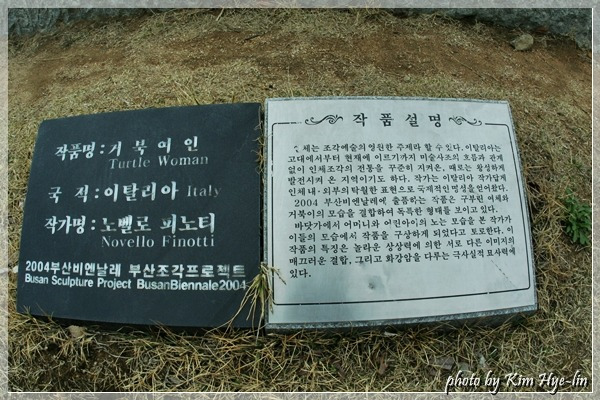 작품명 : 거 북 여 인
Turtle Woman
국 적 : 이탈리아 Italy
작가명 : 노벨로 피노티
Novello Finotti
2004부산비엔날레 부산조각프로젝트
Busan Sculpture Project BusanBiennale2004
작 품 설 명
체는 조각예술의 영원한 주제라 할 수 있다. 이탈리아는
고대에서부터 현재에 이르기까지 미술사조의 흐름과 관계
없이 인체조각의 전통을 꾸준히 지켜온, 때로는 왕성하게
발전시켜 온 지역이기도 하다. 작가는 이탈리아 작가답게
인체 내·외부의 탁월한 표현으로 국제적인 명성을 얻어왔다.
2004 부산비엔날레에 출품하는 작품은 구부린 여체와
거북이의 모습을 결합하여 독특한 형태를 보이고 있다.
바닷가에서 어머니와 어린아이의 노는 모습을 본 작가가
이들의 모습에서 작품을 구상하게 되었다고 토로한다. 이
작품의 특징은 놀라운 상상력에 의한 서로 다른 이미지의
매끄러운 결합, 그리고 화강암을 다루는 극사실적 묘사력에
있다.
photo by Kim Hye-lin